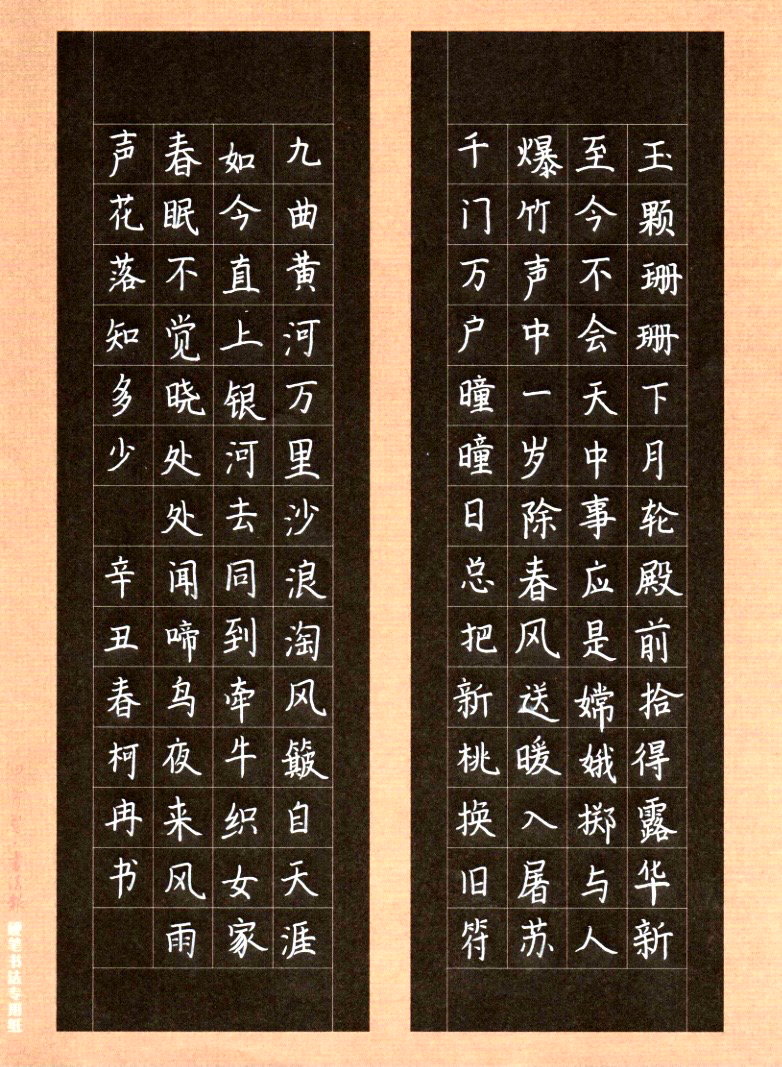 玉颗珊珊下月轮殿前拾得露华新
至今不会天中事应是嫦娥掷与人
爆竹声中一岁除春风送暖入屠苏
千门万户曈曈日总把新桃换旧符
九曲黄河万里沙浪淘风簸自天涯
如今直上银河去同到牵牛织女家
春眠不觉晓处处闻啼鸟夜来风雨
声花落知多少 辛丑春柯冉书
硬笔书法专用纸